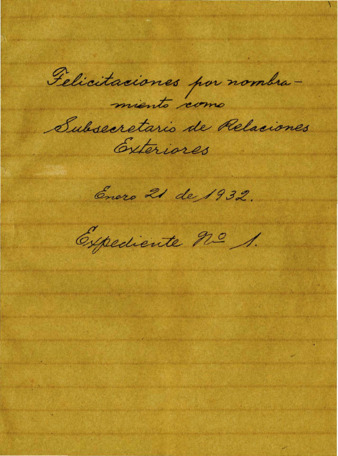 Felicitaciones por nombra-
miento como
Subsecretario de Relaciones
Exteriores
Enero 21 de 1932.
Expediente Nº 1.